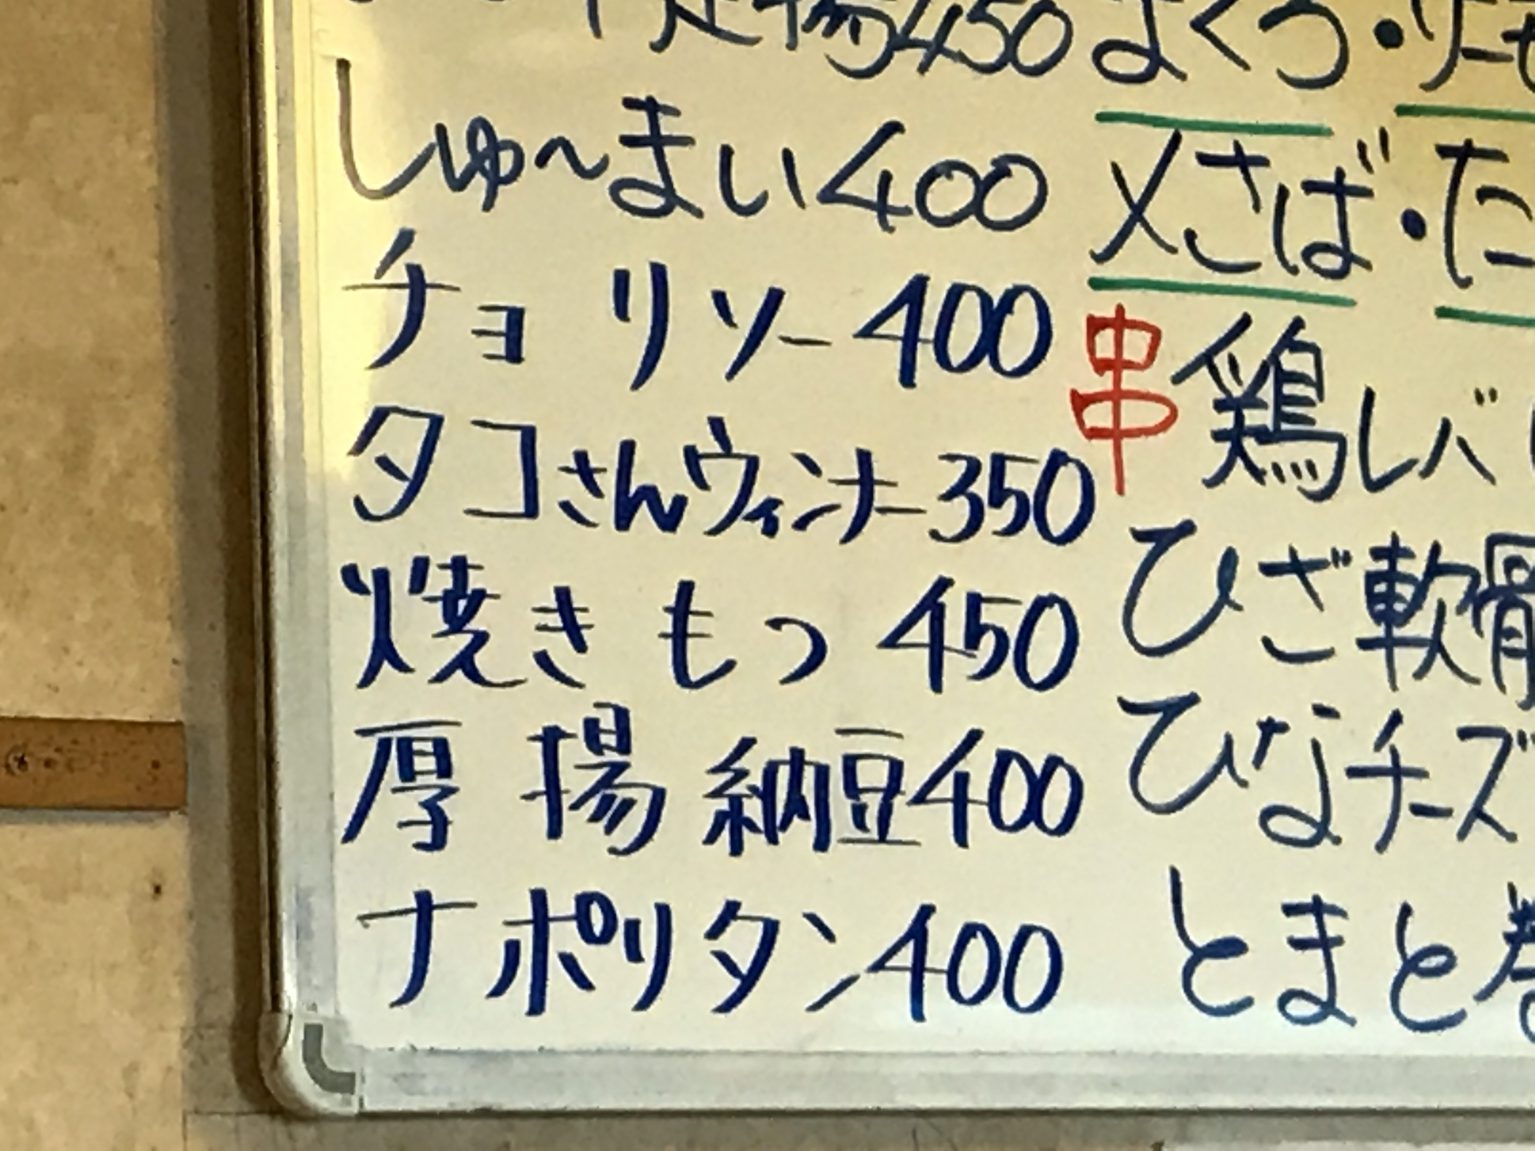 450 まぐろ・サーモ
しゅ〜まい400
〆さば・た
チョリソー400
串 鶏レバ
タコさんウィンナー350
ひざ軟骨
焼きもつ450
ひなチーズ
厚揚納豆400
とまと巻
ナポリタン400